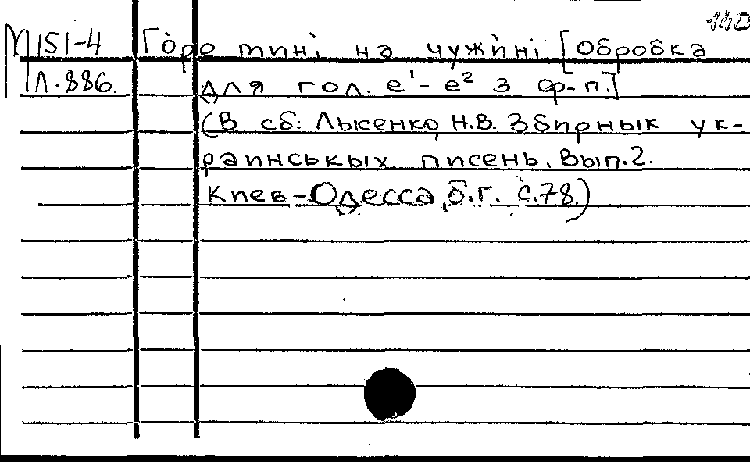 М151-4 Го̀ре мині на чужѝні [обробка
Л.886. для гол. е¹- е² з ф-п.]
(В сб: Лысенко, Н.В. Збирнык ук-
раинськых писень. Вып.2.
Киев-Одесса, б.г. с.78.)